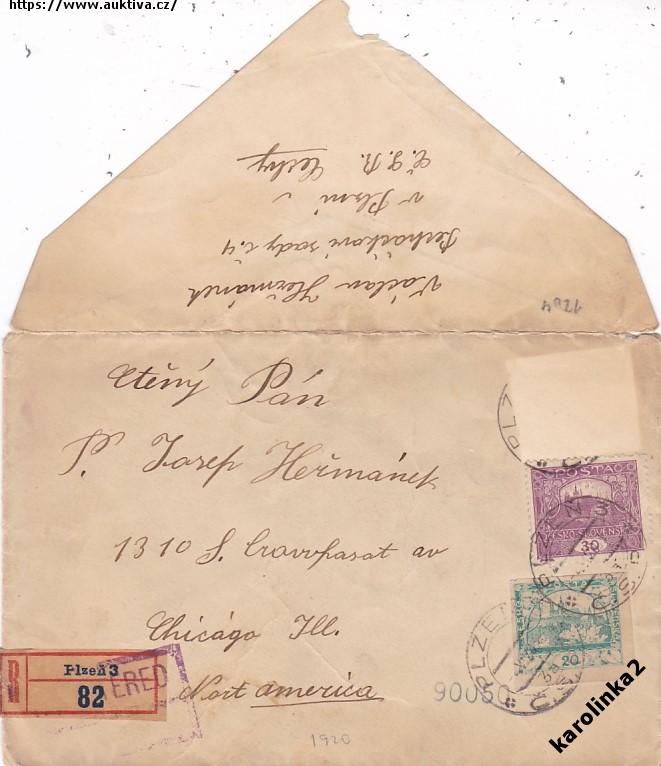 https://www.auktiva.cz/
Václav Heřmánek
sady č. 4
v Plzni
Č. S. R. Čechy
1204
Ctěný Pán
P. Josep Heřmánek
1310 S. av
Chicágo Ill.
Nort america
R
Plzeň 3
82
ERED
90050
1920
POŠTA
ČESKOSLOVENSKÁ
30
20
PLZEŇ 3
PLZEŇ
PLZ
karolinka2